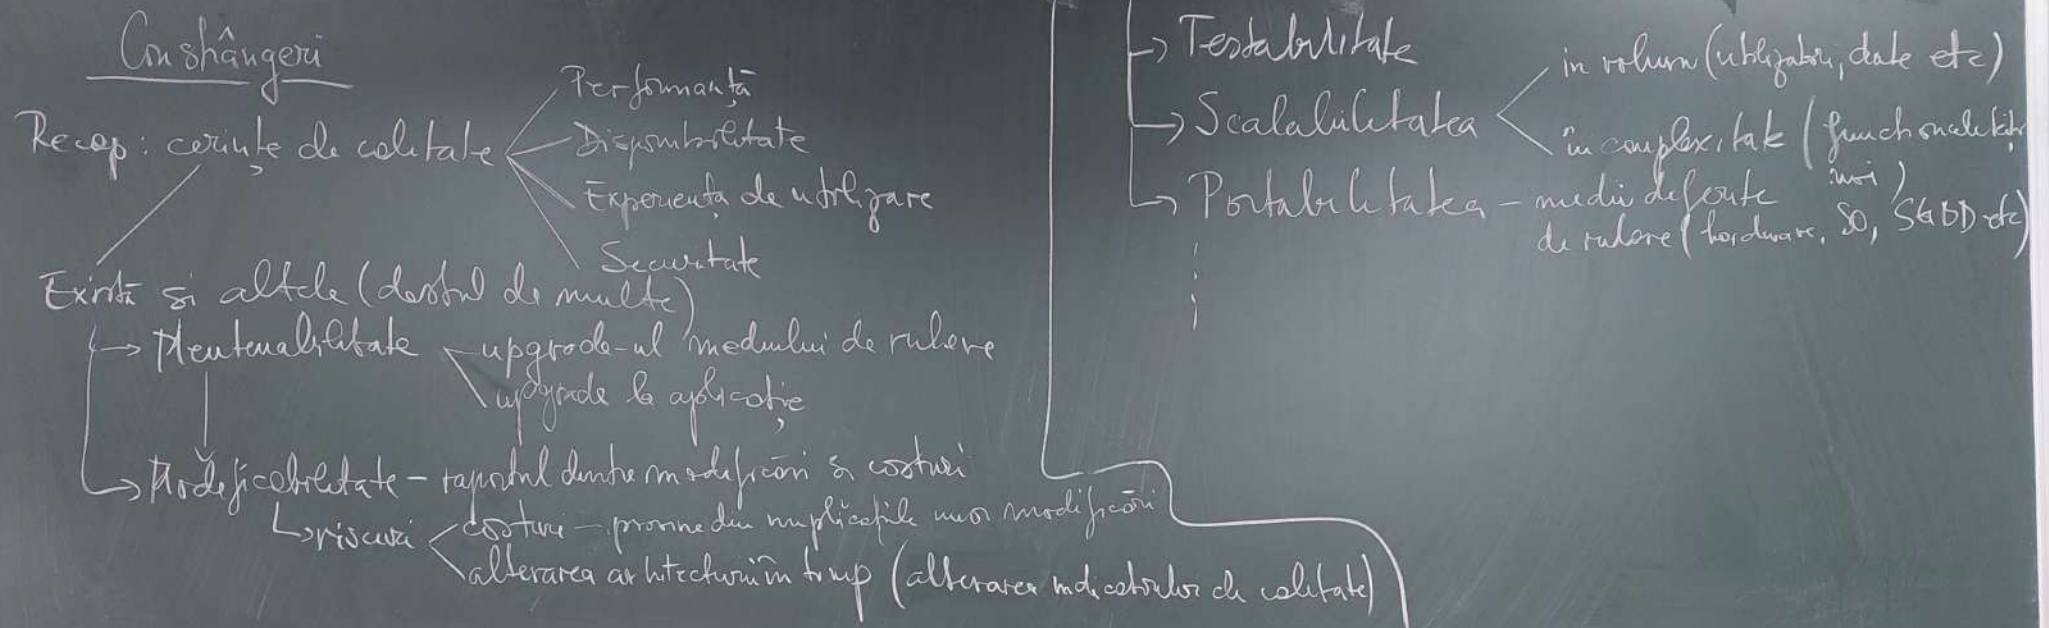 Constrângeri
Recap: cerințe de calitate
Performanță
Disponibilitate
Experiența de utilizare
Securitate
Există și altele (destul de multe)
→ Mentenabilitate
upgrade-ul mediului de rulare
upgrade la aplicație
→ Modificabilitate - raportul dintre modificări și costuri
→ riscuri
costuri - provine din implicațiile unor modificări
alterarea arhitecturii în timp (alterarea indicatorilor de calitate)
→ Testabilitate
→ Scalabilitatea
in volum (utilizatori, date etc)
în complexitate (funcționalități
noi)
→ Portabilitatea - medii diferite
de rulare (hardware, SO, SGBD etc)